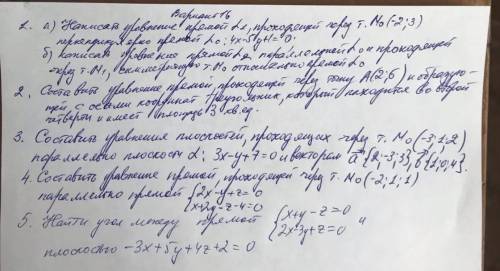 Вариант 16
1. а) Написать уравнение прямой L1, проходящей через т. M0(-2;3)
перпендикулярно прямой L0: 4x-5y+1=0.
б) написать уравнение прямой L2 параллельной L0 и проходящей
через т. M1, симметричную т. M0 относительно прямой L0
2. Составить уравнение прямой, проходящей через точку A(2;6) и образую-
щей с осями координат треугольник, который находится во второй
четверти и имеет площадь 3 кв. ед.
3. Составить уравнения плоскостей, проходящих через т. M0(-3;1;2)
параллельно плоскости α: 3x-y+7=0 и векторам a{2;-3;3}, b{1;0;4}.
4. Составить уравнение прямой, проходящей через т. M0(-2;1;1)
параллельно прямой { 2x-y+z=0
x+2y-z-4=0
5. Найти угол между прямой { x+y-z=0
2x-3y+z=0 и
плоскостью -3x+5y+4z+2=0